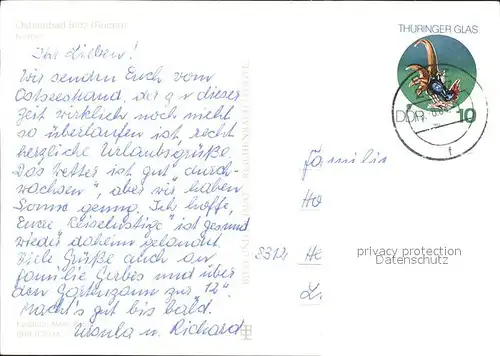 Ostseebad Binz (Rügen)
Ihr Lieben!
Wir senden Euch vom
Ostseestrand, der zu dieser
Zeit wirklich noch nicht
so überlaufen ist, recht
herzliche Urlaubsgrüße.
Das Wetter ist gut „durch-
wachsen", aber wir haben
Sonne genug. Ich hoffe,
Eure „Reiselustige" ist gesund
wieder daheim gelandet.
Viele Grüße auch an
Familie Gerbes und über
den Gartenzaun zur „12".
Macht's gut bis bald.
Ursula u. Richard
THÜRINGER GLAS
DDR 10
Familie
Ho
8312 He
privacy protection
Datenschutz